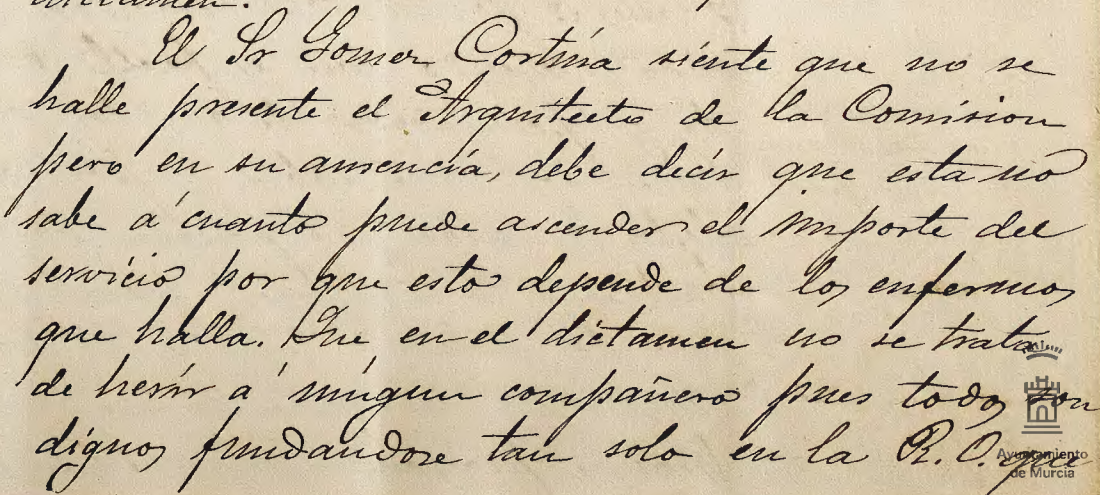 dictamen.
El Sr Gomez Cortina siente que no se
halle presente el Arquitecto de la Comision
pero en su ausencia, debe decir que esta no
sabe á cuanto puede ascender el importe del
servicio por que esto depende de los enfermos
que halla. Que en el dictamen no se trata
de herir á ningun compañero pues todos son
dignos fundandose tan solo en la R. O. que
Ayuntamiento
de Murcia